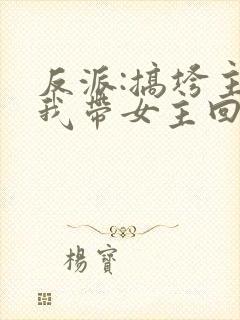 反派:搞垮主
我带女主回
楊寶